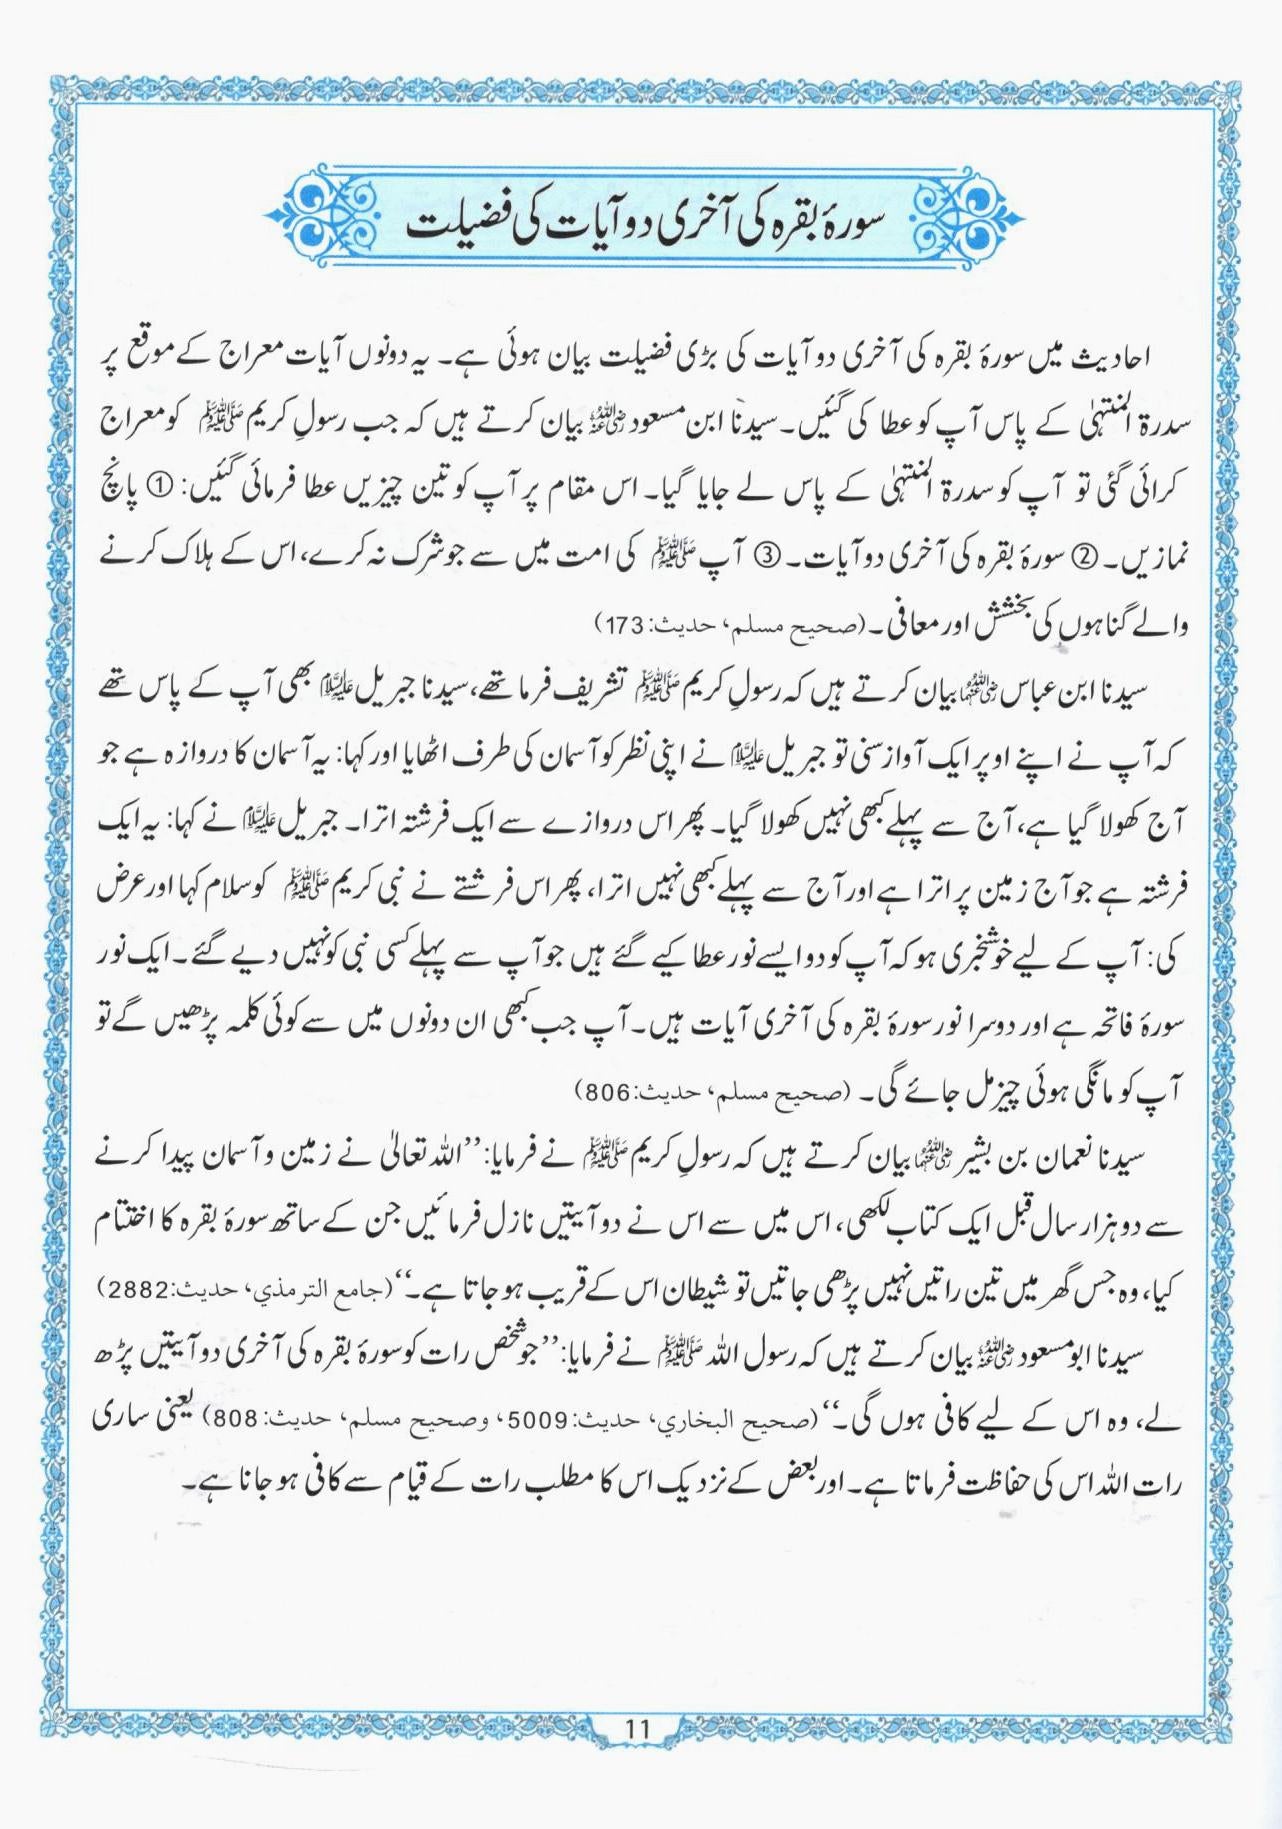 سورۂ بقرہ کی آخری دو آیات کی فضیلت
احادیث میں سورۂ بقرہ کی آخری دو آیات کی بڑی فضیلت بیان ہوئی ہے۔ یہ دونوں آیات معراج کے موقع پر
سدرۃ المنتہیٰ کے پاس آپ کو عطا کی گئیں۔ سیدنا ابن مسعود رضی اللہ عنہ بیان کرتے ہیں کہ جب رسولِ کریم ﷺ کو معراج
کرائی گئی تو آپ کو سدرۃ المنتہیٰ کے پاس لے جایا گیا۔ اس مقام پر آپ کو تین چیزیں عطا فرمائی گئیں: ① پانچ
نمازیں۔ ② سورۂ بقرہ کی آخری دو آیات۔ ③ آپ ﷺ کی امت میں سے جو شرک نہ کرے، اس کے ہلاک کرنے
والے گناہوں کی بخشش اور معافی۔ (صحیح مسلم، حدیث: 173)
سیدنا ابن عباس رضی اللہ عنہما بیان کرتے ہیں کہ رسولِ کریم ﷺ تشریف فرما تھے، سیدنا جبریل علیہ السلام بھی آپ کے پاس تھے
کہ آپ نے اپنے اوپر ایک آواز سنی تو جبریل علیہ السلام نے اپنی نظر کو آسمان کی طرف اٹھایا اور کہا: یہ آسمان کا دروازہ ہے جو
آج کھولا گیا ہے، آج سے پہلے کبھی نہیں کھولا گیا۔ پھر اس دروازے سے ایک فرشتہ اترا۔ جبریل علیہ السلام نے کہا: یہ ایک
فرشتہ ہے جو آج زمین پر اترا ہے اور آج سے پہلے کبھی نہیں اترا، پھر اس فرشتے نے نبی کریم ﷺ کو سلام کہا اور عرض
کی: آپ کے لیے خوشخبری ہو کہ آپ کو دو ایسے نور عطا کیے گئے ہیں جو آپ سے پہلے کسی نبی کو نہیں دیے گئے۔ ایک نور
سورۂ فاتحہ ہے اور دوسرا نور سورۂ بقرہ کی آخری آیات ہیں۔ آپ جب کبھی ان دونوں میں سے کوئی کلمہ پڑھیں گے تو
آپ کو مانگی ہوئی چیز مل جائے گی۔ (صحیح مسلم، حدیث: 806)
سیدنا نعمان بن بشیر رضی اللہ عنہما بیان کرتے ہیں کہ رسولِ کریم ﷺ نے فرمایا: ’’اللہ تعالیٰ نے زمین و آسمان پیدا کرنے
سے دو ہزار سال قبل ایک کتاب لکھی، اس میں سے اس نے دو آیتیں نازل فرمائیں جن کے ساتھ سورۂ بقرہ کا اختتام
کیا، وہ جس گھر میں تین راتیں نہیں پڑھی جاتیں تو شیطان اس کے قریب ہو جاتا ہے۔‘‘ (جامع الترمذي، حديث: 2882)
سیدنا ابو مسعود رضی اللہ عنہ بیان کرتے ہیں کہ رسول اللہ ﷺ نے فرمایا: ’’جو شخص رات کو سورۂ بقرہ کی آخری دو آیتیں پڑھ
لے، وہ اس کے لیے کافی ہوں گی۔‘‘ (صحيح البخاري، حديث: 5009، وصحيح مسلم، حديث: 808) یعنی ساری
رات اللہ اس کی حفاظت فرماتا ہے۔ اور بعض کے نزدیک اس کا مطلب رات کے قیام سے کافی ہو جانا ہے۔
11